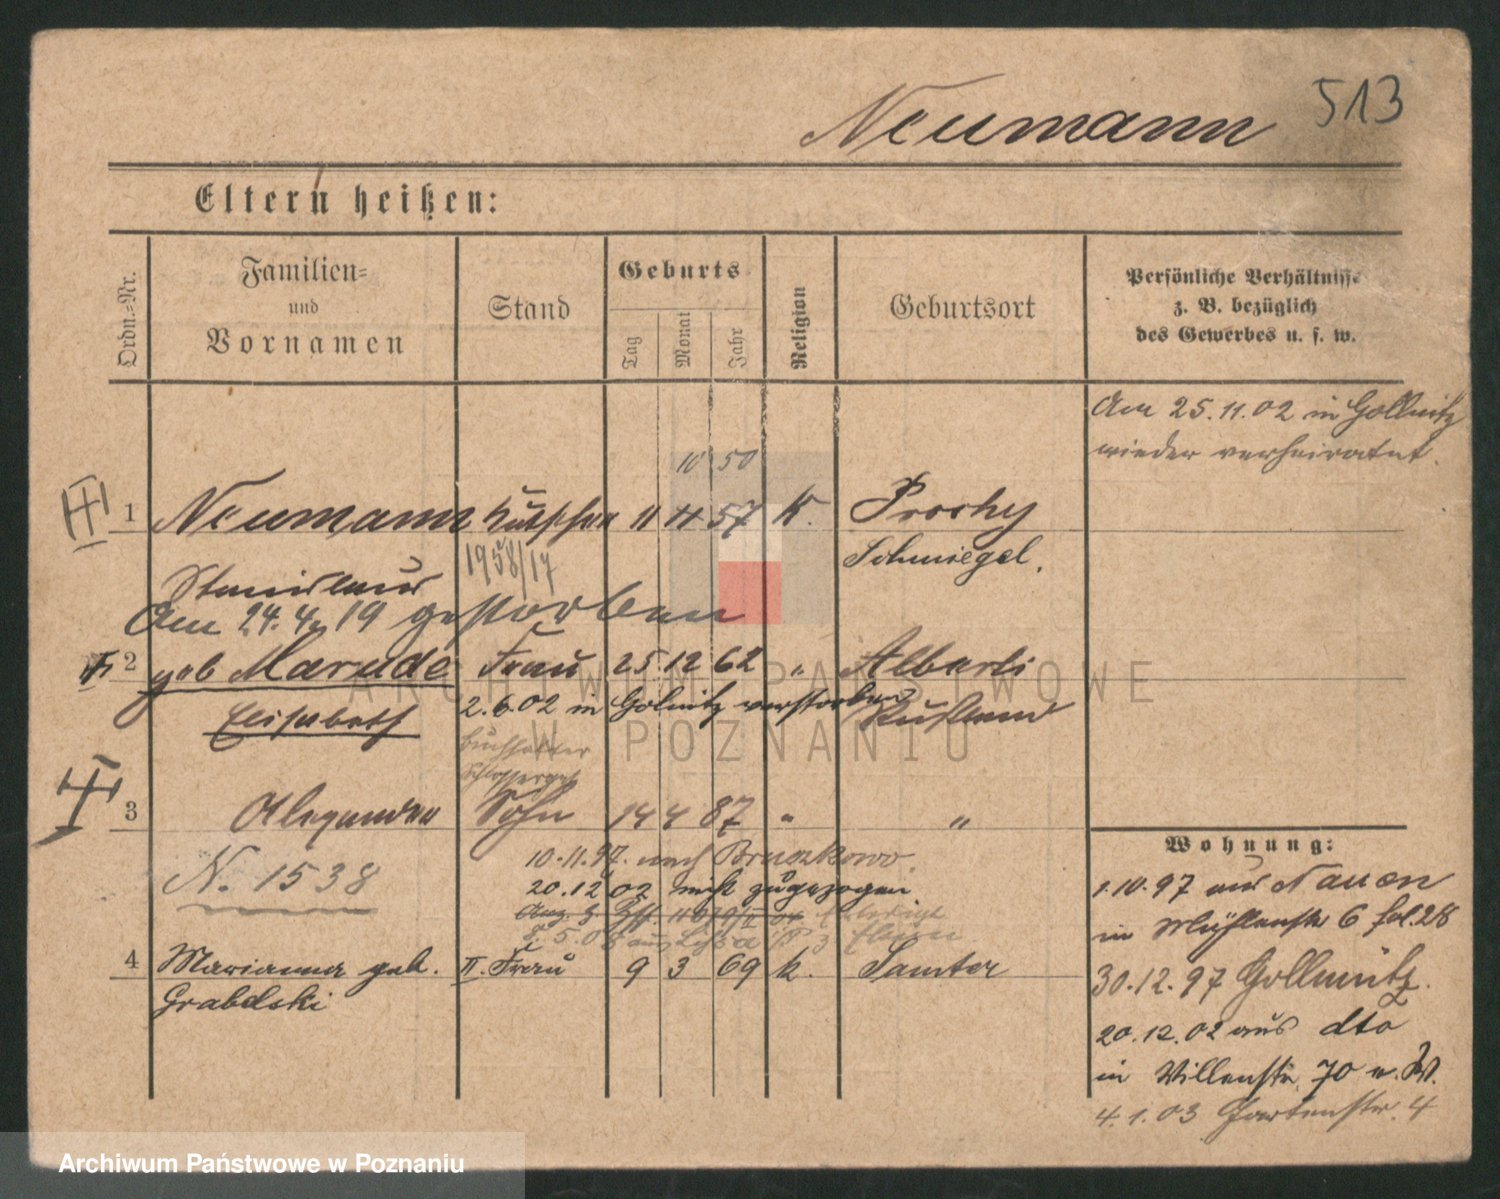 Neumann 513
Eltern heißen:
Ordn.=Nr.
Familien=
und
Vornamen
Stand
Geburts
Tag
Monat
Jahr
Religion
Geburtsort
Persönliche Verhältnisse
z. B. bezüglich
des Gewerbes u. s. w.
Am 25.11.02 in Gollnitz
wieder verheiratet.
10 50
1 Neumann Kutscher 11 11 57 K.
Schmiegel.
1958/17
Stanislaus
Am 24.4.19 gestorben
2 geb Marude Frau 25 12 62 "
2.6.02 in Golnitz verstorben
Elisabeth Rußland
3 Alexander Sohn 14 4 87 " "
N. 1538
10.11.97. nach Bruszkowo
20.12 02 mit zugezogen
4 Marianna geb. II. Frau 9 3 69 k. Samter
Grabelski
Wohnung:
1.10.97 aus Nauen
in Mühlenstr 6
30.12.97 Gollmütz.
20.12.02 aus dto
in 70
4.1.03 Gartenstr. 4
ARCHIWUM PAŃSTWOWE
W POZNANIU
Archiwum Państwowe w Poznaniu